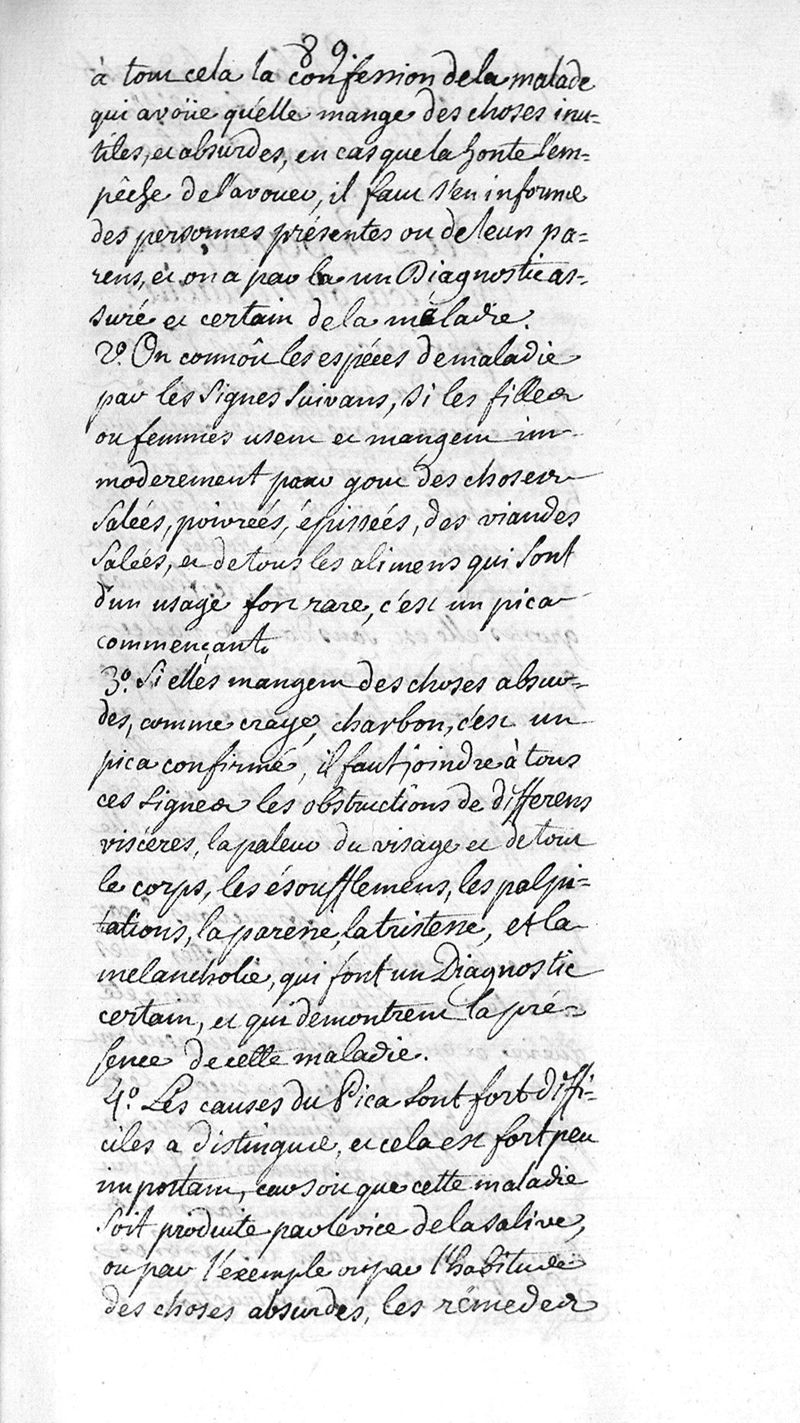 89.
à tout cela la confession de la malade
qui avoüe qu'elle mange des choses inu=
tiles, et absurdes, en cas que la honte l'em=
pêche de l'avouer, il faut s'en informer
des personnes présentes ou de leurs pa=
rens, et on a par la un Diagnostic as=
suré et certain de la maladie.
2.º On connoît les espéces de maladie
par les signes suivans, si les filles
ou femmes usent et mangent im=
moderement par gout des choses
salées, poivreés, épisseés, des viandes
salées, et de tous les alimens qui sont
d'un usage fort rare, c'est un pica
commençant.
3.º Si elles mangent des choses absur=
des, comme craye, charbon, c'est un
pica confirmé, il faut joindre à tous
ces signes les obstructions de differens
viscéres, la paleur du visage et de tout
le corps, les ésoufflemens, les palpi=
tations, la paresse, la tristesse, et la
melancholie, qui font un Diagnostic
certain, et qui demontrent la pré=
sence de cette maladie.
4.º Les causes du Pica sont fort diffi=
ciles a distinguer, et cela est fort peu
important, car soit que cette maladie
soit produite par le vice de la salive,
ou par l'exemple ou par l'habitude
des choses absurdes, les rémedes